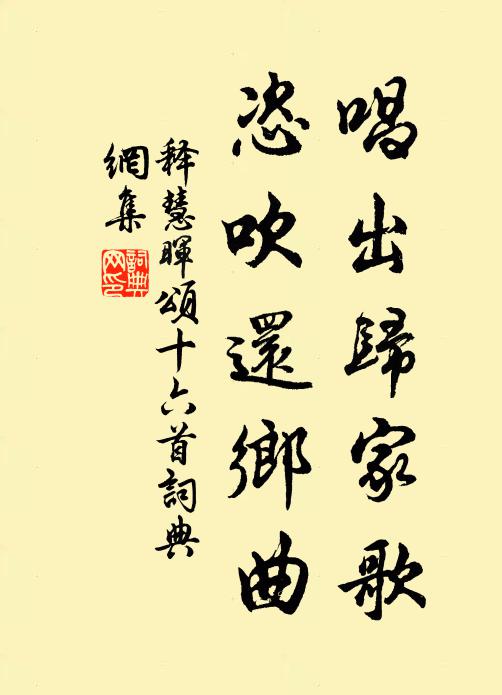 唱出歸家歌
恣吹還鄉曲
释慧暉頌十六首詞典
網集
詞典网印